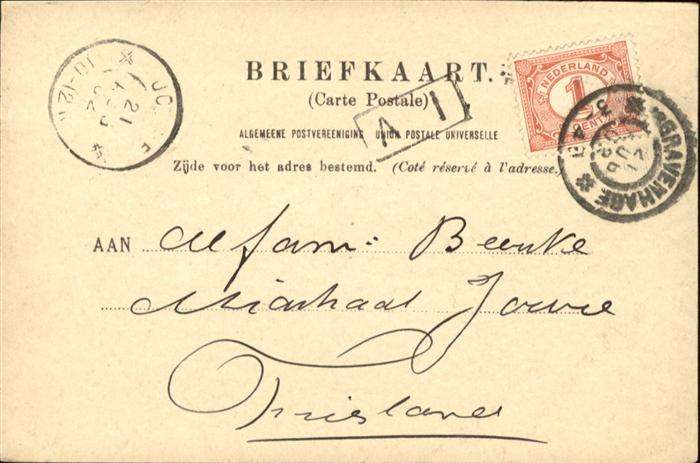 BRIEFKAART.
(Carte Postale)
ALGEMEENE POSTVEREENIGING UNION POSTALE UNIVERSELLE
Zijde voor het adres bestemd. (Coté réservé à l'adresse.)
NEDERLAND
1
CENT
'S GRAVENHAGE
A I
10-12V
21
AUG
02
AAN de fam: Beenke
Joure
Friesland